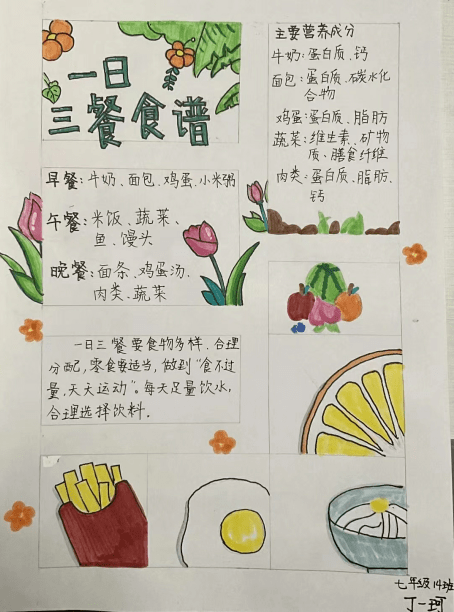 一日
三餐食谱
早餐:牛奶、面包、鸡蛋、小米粥
午餐:米饭、蔬菜、
鱼、馒头
晚餐:面条、鸡蛋汤、
肉类、蔬菜
一日三餐要食物多样、合理
分配,零食要适当,做到"食不过
量,天天运动"。每天足量饮水,
合理选择饮料.
主要营养成分
牛奶:蛋白质、钙
面包:蛋白质、碳水化
合物
鸡蛋:蛋白质、脂肪
蔬菜:维生素、矿物
质、膳食纤维
肉类:蛋白质、脂肪、
钙
七年级14班
丁一珂